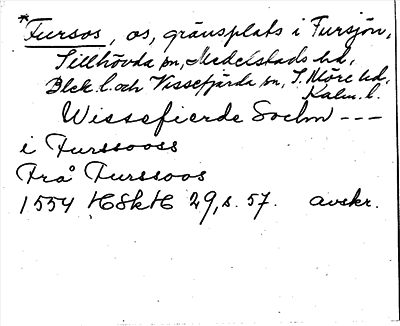 *Fursos, os, gränsplats i Fursjön,
Sillhövda sn, Medelstads hd,
Blek. l. och Vissefjärda sn, S. Möre hd,
Kalm. l.
Wissefierde Sochn ---
i Furssooss
Frå Furssoos
1554 HSkH 29, s. 57. avskr.